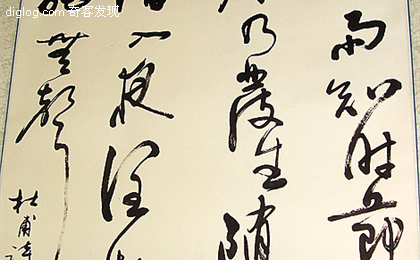 diglog.com 奇客发现
雨知时节
乃發生随
入夜润
無声
杜甫詩